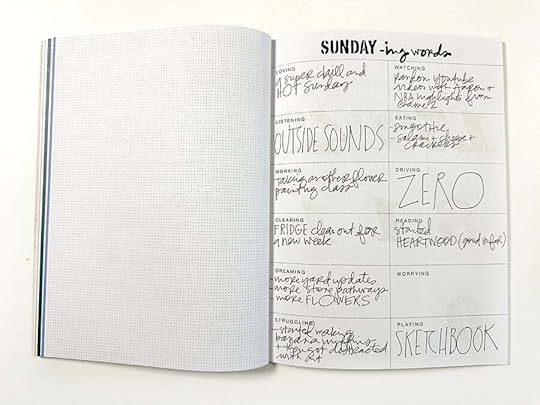 SUNDAY -ing words
LOVING
a super chill and
HOT Sunday
WATCHING
random Youtube
videos with Aaron +
NBA highlights from
Game 2
LISTENING
OUTSIDE SOUNDS
EATING
-smoothie
-salami + cheese +
crackers
WORKING
-taking another flower
painting class
DRIVING
ZERO
CLEANING
FRIDGE clean out for
a new week
READING
started
HEARTWOOD (good so far)
DREAMING
-more yard updates
-more stone pathways
-more FLOWERS
WORRYING
STRUGGLING
-started making
banana muffins
+ then got distracted
with art
PLAYING
SKETCHBOOK